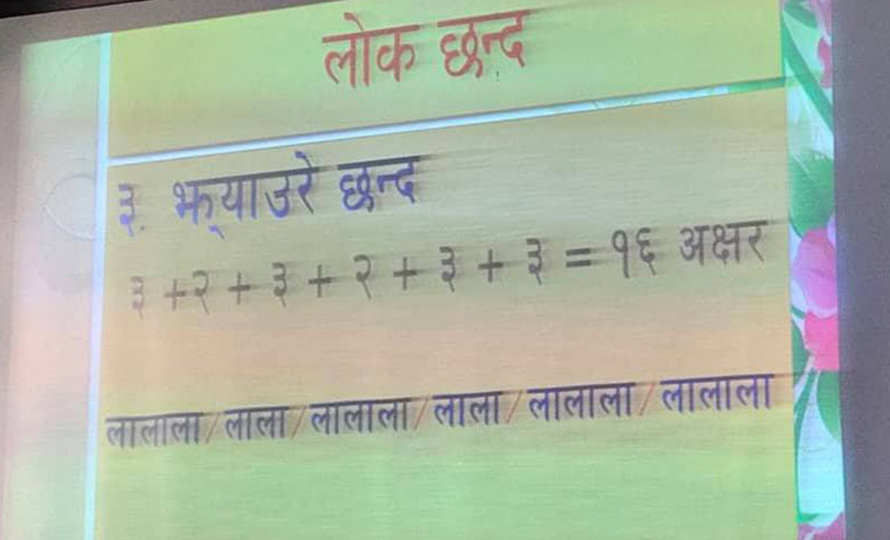 लोक छन्द
३. झ्याउरे छन्द
३ +२ + ३ + २ + ३ + ३ = १६ अक्षर
लालाला/लाला/लालाला/लाला/लालाला/लालाला